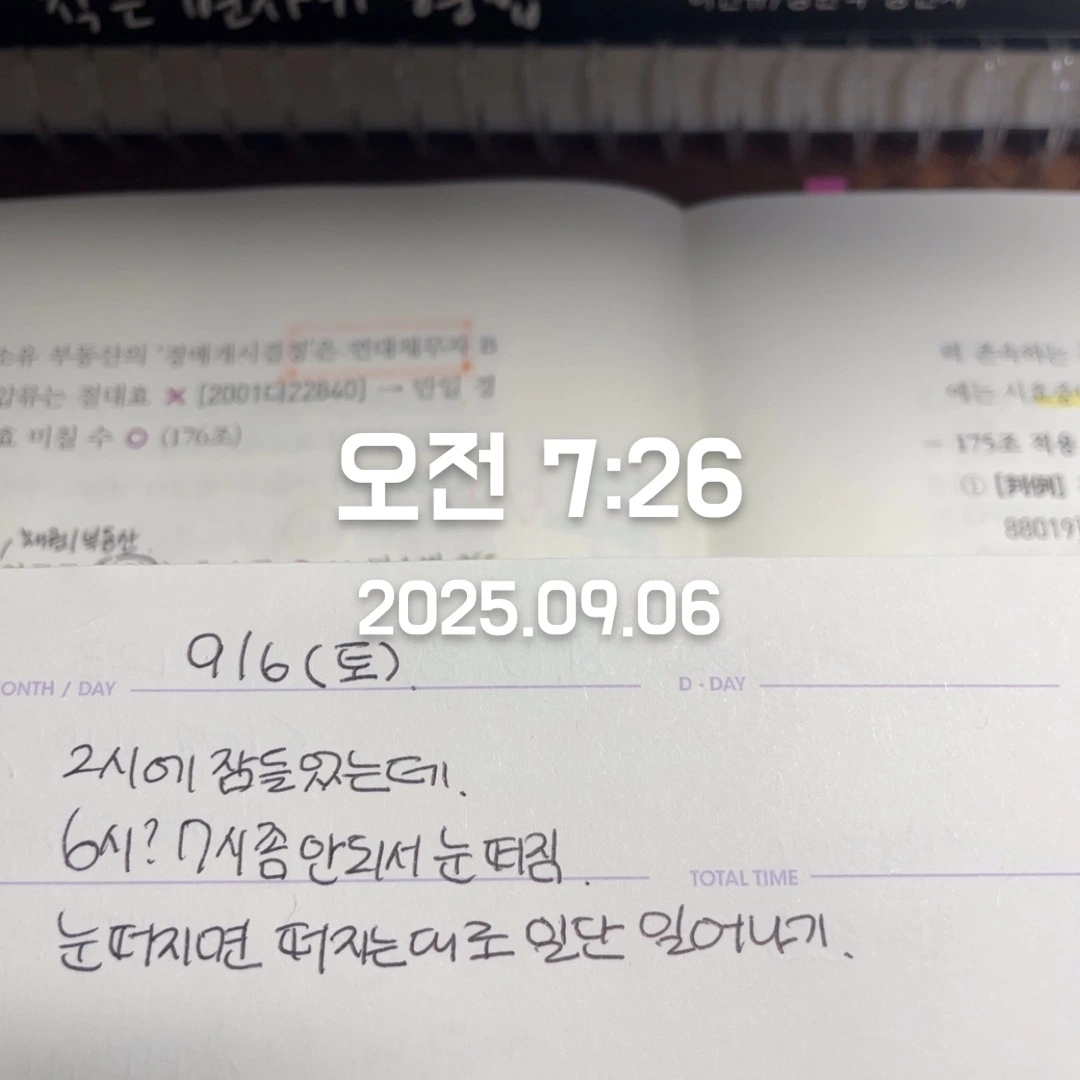 소유 부동산의 '경매개시결정'은 연대채무자 B
압류는 절대효 × [2001다22840] → 만일 경
효 미칠 수 ○ (176조)
에는 시효중
- 175조 적용
① [判例]
88019
오전 7:26
2025.09.06
9/6 (토).
MONTH / DAY
D - DAY
2시에 잠들었는데.
6시? 7시 좀 안되서 눈 떠짐.
TOTAL TIME
눈떠지면 떠지는대로 일단 일어나기.